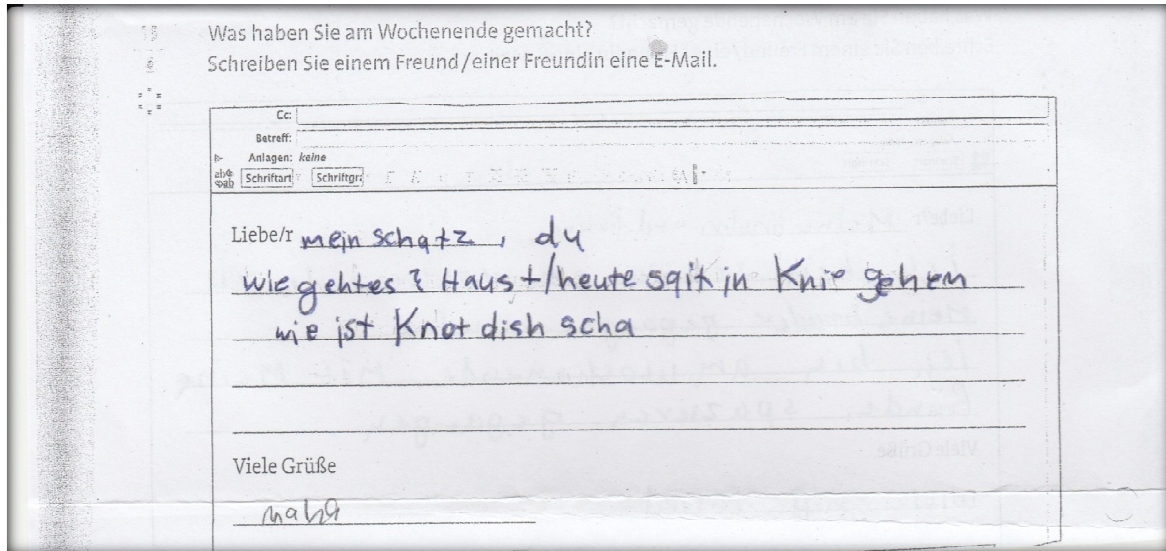 Was haben Sie am Wochenende gemacht?
Schreiben Sie einem Freund/einer Freundin eine E-Mail.
Cc:
Betreff:
Anlagen: keine
Schriftart Schriftgr
Liebe/r mein schatz, du
wie gehtes? Haust/heute sqit in Knie gehen
wie ist Knot dish scha
Viele Grüße
maha